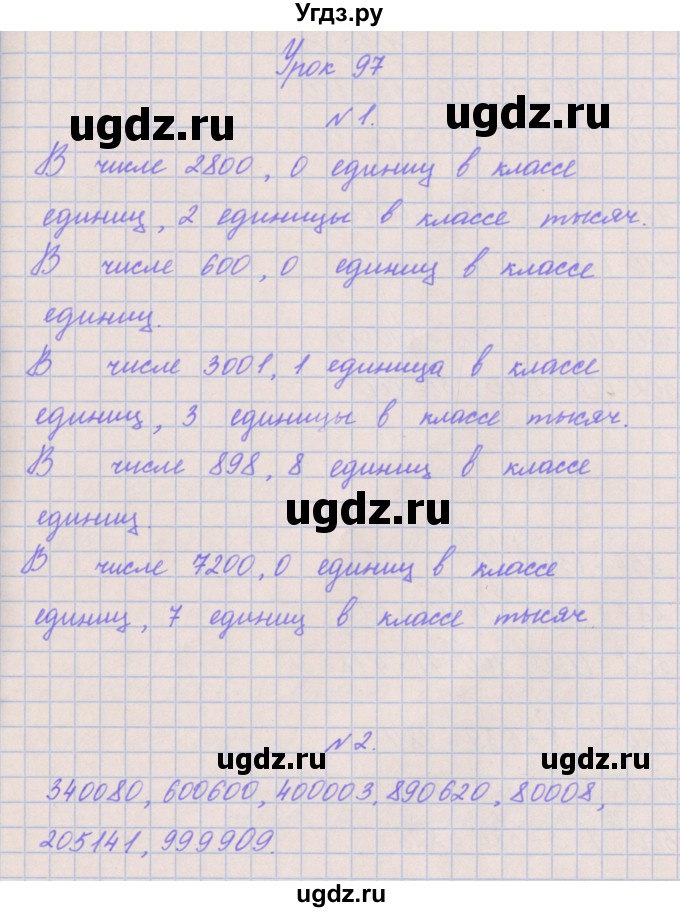 Угдз.ру
Урок 97
ugdz.ru
№1.
ugdz.ru
В числе 2800, 0 единиц в классе
единиц, 2 единицы в классе тысяч.
В числе 600, 0 единиц в классе
единиц.
В числе 3001, 1 единица в классе
единиц, 3 единицы в классе тысяч.
В числе 898, 8 единиц в классе
единиц.
ugdz.ru
В числе 7200, 0 единиц в классе
единиц, 7 единиц в классе тысяч.
№2.
ugdz.ru
ugdz.ru
340080, 600600, 400003, 890620, 80008,
205141, 999909.
ugdz.ru